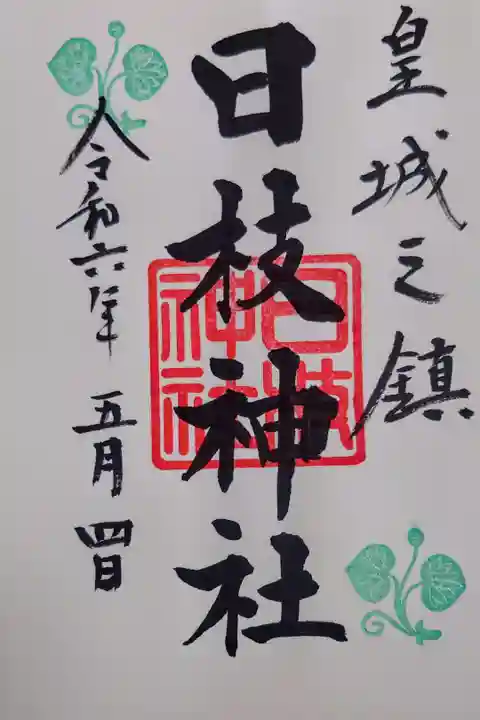 皇城之鎮
日枝神社
日枝神社
令和六年 五月四日